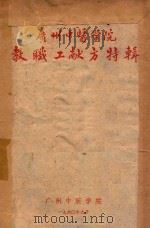 广州中医学院
教职工献方特辑
广州中医学院